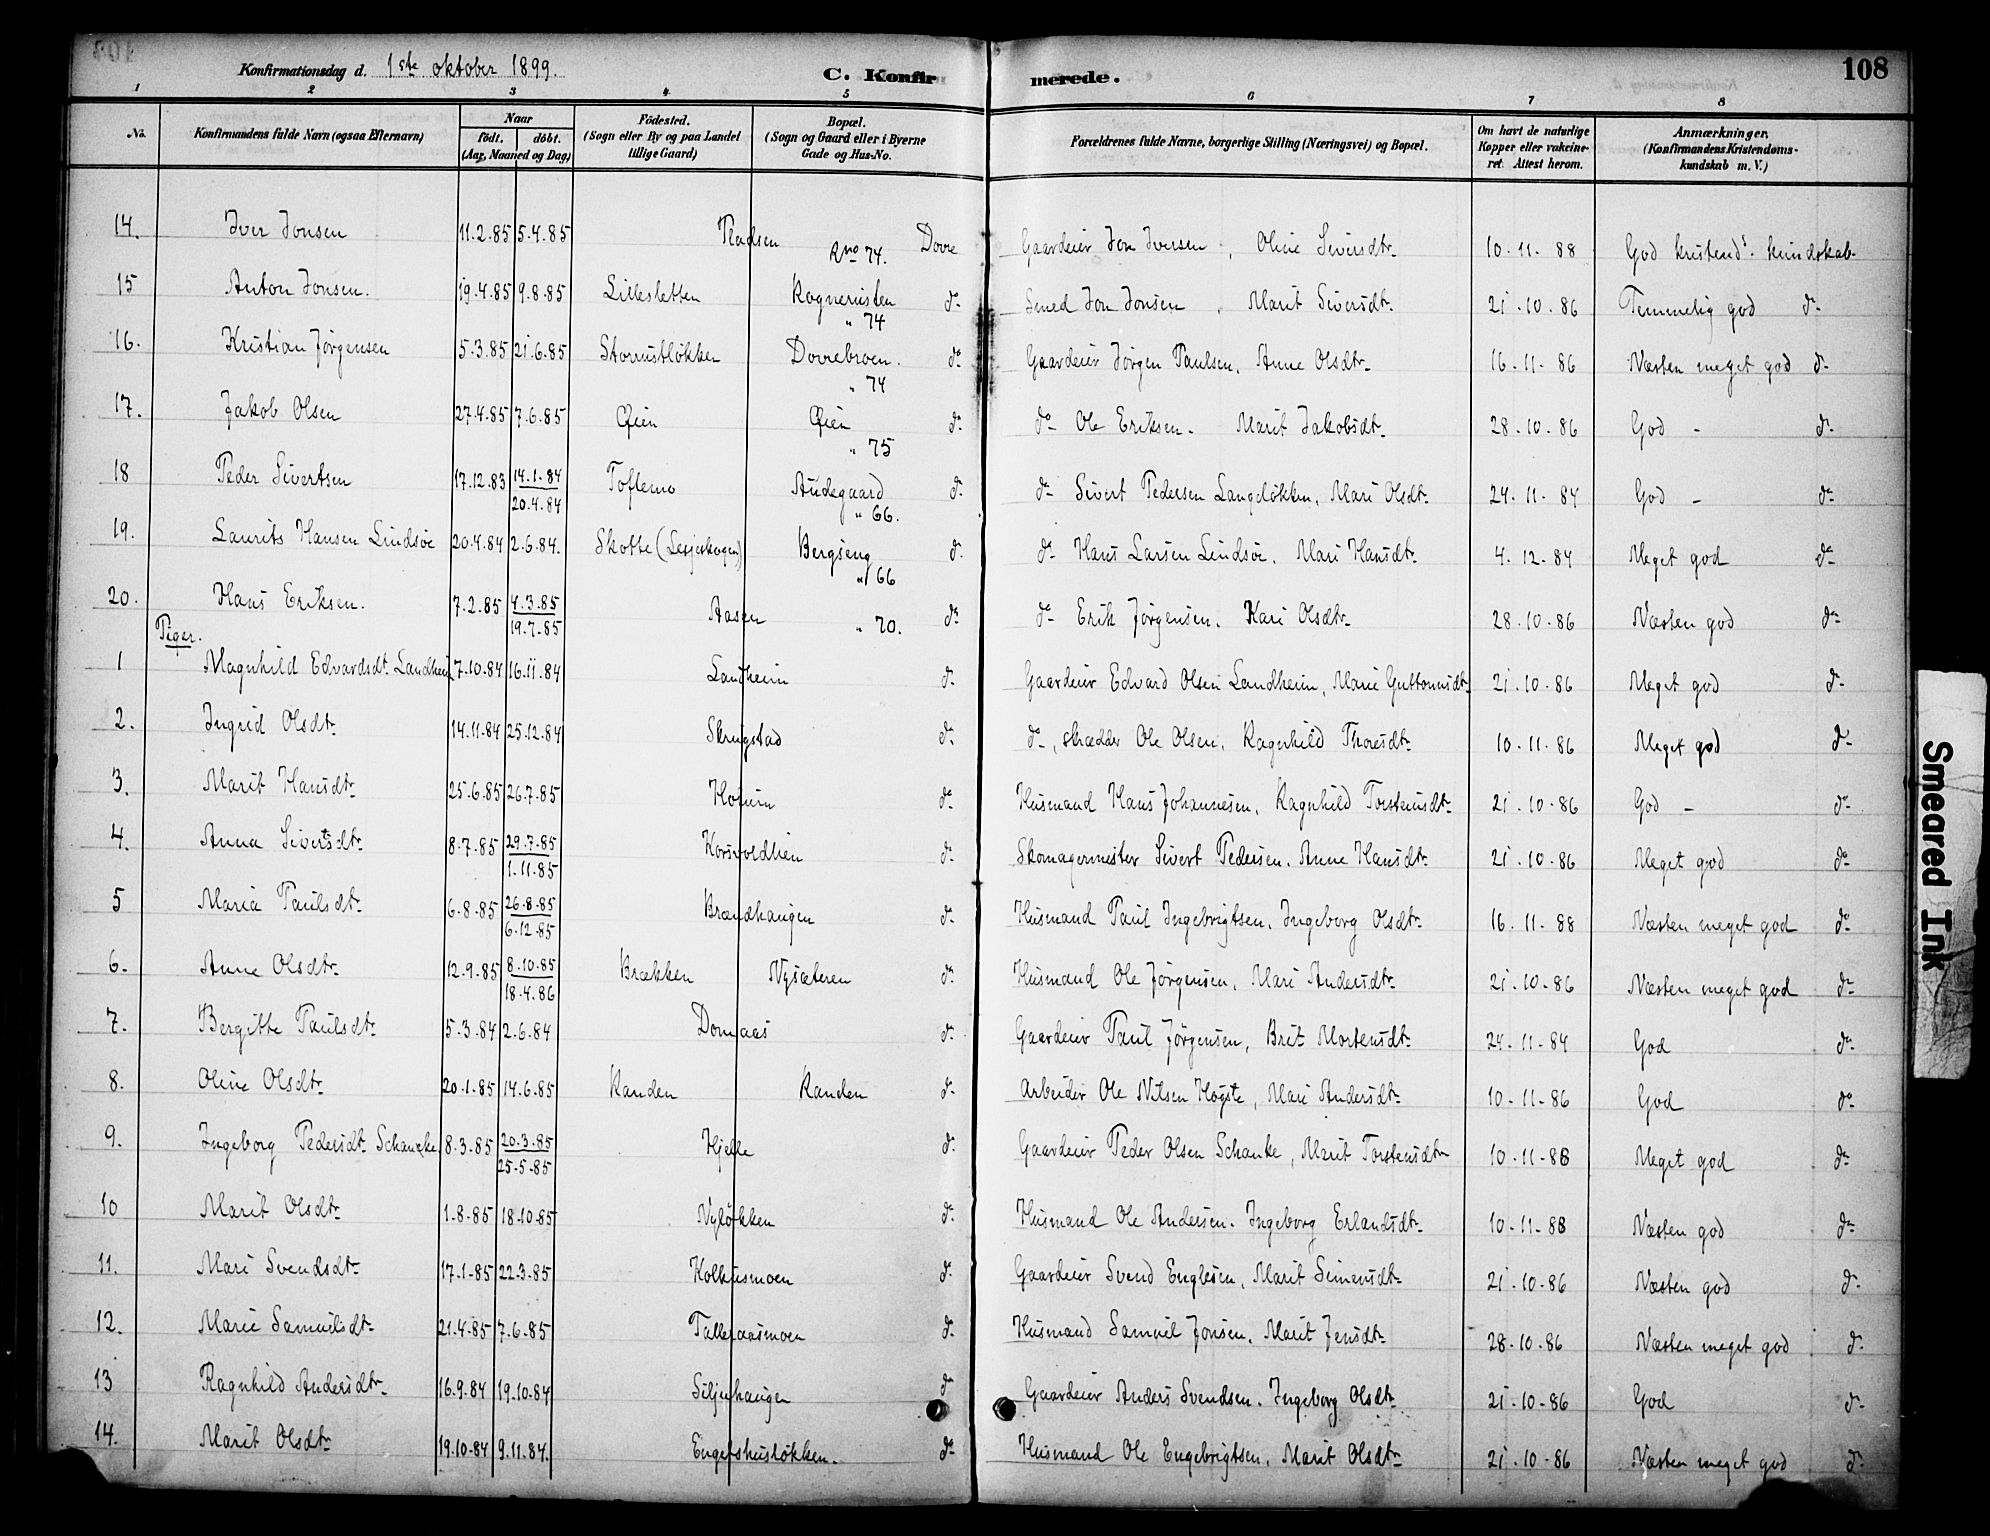 Konfirmationsdag d. 1ste oktober 1899. C. Konfirmerede. 108
1 2 3 4 5 6 7 8
No. Konfirmandens fulde Navn (ogsaa Efternavn) Naar født. døbt. (Aar, Maaned og Dag) Fødested. (Sogn eller By og paa Landet tillige Gaard) Bopæl. (Sogn og Gaard eller i Byerne Gade og Hus-No. Forældrenes fulde Navne, borgerlige Stilling (Næringsvei) og Bopæl. Om havt de naturlige Kopper eller vakcineret. Attest herom. Anmærkninger. (Konfirmandens Kristendomskundskab m. V.)
14. Iver Jonsen 11.2.85 5.4.85 Pladsen Dovre Gaardeier Jon Iversen, Oline Siversdtr. 10-11-88 God kristend.s kundskab.
Rno 74.
15 Anton Jonsen. 19.4.85 9.8.85 Lillesletten Rognerusten do. Smed Jon Jonsen, Marit Siversdt. 21-10-86 Temmelig god do.
" 74
16. Kristian Jørgensen 5.3.85 21.6.85 Storrustløkken Dovrebroen. do. Gaardeier Jørgen Paulsen, Anne Olsdtr. 16-11-86 Næsten meget god do.
" 74
17. Jakob Olsen 27.4.85 7.6.85 Øien Øien do. do. Ole Eriksen. Marit Jakobsdt. 28-10-86 God - do.
" 75
18 Peder Sivertsen 17.12.83 14.1.84 20.4.84 Toftemo Audegaard do. do. Sivert Pedersen Langeløkken, Mari Olsdt. 24-11-84 God - do.
" 66.
19. Laurits Hansen Lindsøe 20.4.84 2.6.84. Skotte (Lesjeskogen) Bergseng do. do. Hans Larsen Lindsøe, Mari Hansdt. 4-12-84 Meget god do.
" 66
20. Hans Eriksen. 7.2.85 4.3.85 19.7.85 Aasen do. do. Erik Jørgensen. Kari Olsdtr. 28-10-86 Næsten god do.
" 70.
Piger.
1 Magnhild Edvardsdt. Landheim 7.10.84 16.11.84 Landheim do. Gaardeier Edvard Olsen Landheim, Marie Guttormsdt. 21-10-86 Meget god do.
2. Ingrid Olsdt. 14.11.84 25.12.84 Skrugstad do. do., skrædder Ole Olsen, Ragnhild Thoresdt. 10-11-86 Meget god do.
3. Marit Hansdt. 25.6.85 26.7.85 do. Husmand Hans Johannesen, Ragnhild Torstensdt. 21-10-86 God - do.
4. Anna Sivertsdt. 8.7.85 29.7.85 1.11.85 Korsvoldlien do. Skomagermester Sivert Pedersen, Anne Hansdt. 21-10-86 Meget god do.
5 Maria Paulsdt. 6.8.85 26.8.85 6.12.85 Brændhaugen do. Husmand Paul Ingebrigtsen, Ingeborg Olsdt. 16-11-88 Næsten meget god do.
6. Anne Olsdtr. 12.9.85 8.10.85 18.4.86 Brækken Nysæteren do. Husmand Ole Jørgensen, Mari Andersdt. 21-10-86 Næsten meget god do.
7. Bergitte Paulsdt. 5.3.84 2.6.84 Domaas do. Gaardeier Paul Jørgensen, Brit Mortensdt. 24-11-84 God do.
8. Oline Olsdtr. 20.1.85 14.6.85 Randen Randen do. Arbeider Ole Nilsen Høgste, Mari Andersdt. 10-11-86 God do.
9. Ingeborg Pedersdt. Schancke 8.3.85 20.3.85 25.5.85 Hjelle do. Gaardeier Peder Olsen Schanke, Marit Torstensdt. 10-11-88 Meget god do.
10 Marit Olsdt. 1.8.85 18.10.85 Nyløkken do. Husmand Ole Andersen. Ingeborg Erlandsdt. 10-11-88 Næsten god do.
11. Mari Svendsdt. 17.1.85 22.3.85 Kolhusmoen do. Gaardeier Svend Englesen, Marit Simensdt. 21-10-86 Næsten god do.
12. Marie Samuelsdt. 21.4.85 7.6.85 Talleraasmoen do. Husmand Samuel Jonsen, Marit Jensdt. 28-10-86 Næsten meget god do.
13 Ragnhild Andersdt. 16.9.84 19.10.84 Siljuhaugen do. Gaardeier Anders Svendsen. Ingeborg Olsdt. 21-10-86 God do.
14. Marit Olsdt. 19.10.84 9.11.84. Engelshusløkken. do. Husmand Ole Engebrigtsen, Marit Olsdt. 21-10-86 Næsten meget god do.
Smeared Ink